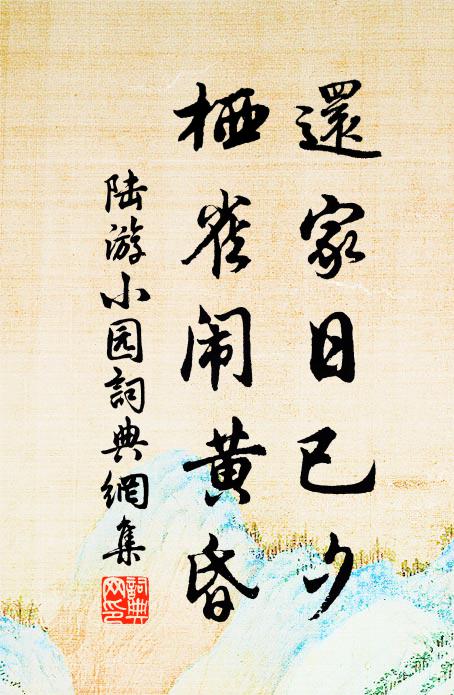 還家日已夕
栖雀闹黄昏
陆游小园詞典網集
詞典网印